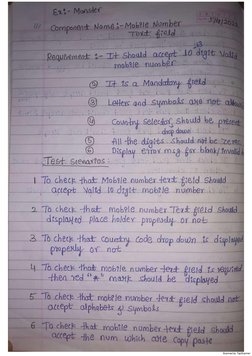 Ex:- Monster
Component Name :- Mobile Number
Text field
Requirement :- It should accept 10 digit valid
mobile number
② It is a Mandatory field
③ Letters and symbols are not allow
④ Country selector should be present
drop down
⑤ All the digits should not be zero
⑥ Display error msg for blank/invalid
Test Scenarios:
1 To check that mobile number text field should
accept valid 10 digit mobile number
2 To check that mobile number Text field should
displayed place holder properly or not
3 To check that country code drop down is displayed
properly or not
4 To check that mobile number text field is required
then red "*" mark should be displayed
5 To check that mobile number text field should not
accept alphabets & symbols
6 To check that mobile number text field should
accept the num which are copy paste